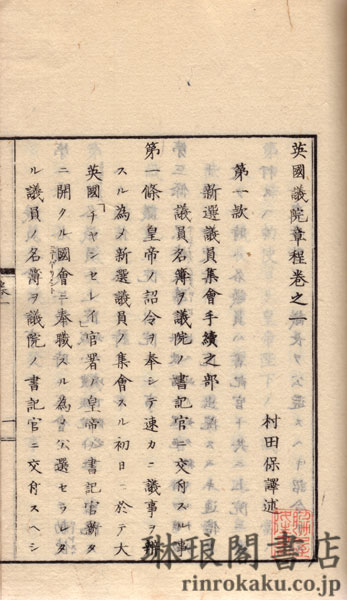 英國議院章程卷之一
村田保譯述
第一欵
新選議員集會手續之部
議員名簿ヲ議院ノ書記官ニ交付スル事
第一條 皇帝ノ詔令ヲ奉シテ速カニ議事ヲ辨
スル爲メ新選議員ノ集會スル初日ニ於テ大
英國「チヤンセレイ」官署ノ皇帝ノ書記官新タ
ニ開クル國會ニ奉職スル為メ公選セラレタ
ル議員ノ名簿ヲ議院ノ書記官ニ交付スヘシ
琳琅閣書店
rinrokaku.co.jp